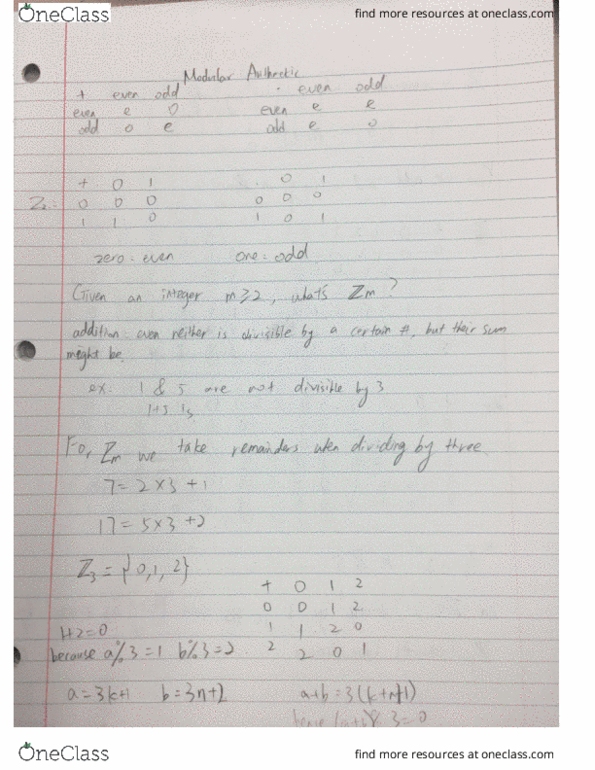 OneClass
find more resources at oneclass.com
Modular Authectic
+ even odd
even e O
odd o e
· even odd
even e e
odd e o
+ 0 1
Z₂: 0 0 0
1 1 0
. 0 1
0 0 0
1 0 1
zero = even one = odd
Given an integer m ≥ 2, what's ℤm?
addition: even neither is divisible by a certain #, but their sum
might be.
ex: 1 & 5 are not divisible by 3
1+5 is
For ℤm we take remainders when dividing by three
7 = 2 x 3 + 1
17 = 5 x 3 + 2
ℤ₃ = {0, 1, 2}
+ 0 1 2
0 0 1 2
1 1 2 0
2 2 0 1
1+2=0
because a%3 = 1 b%3 = 2
a = 3k+1 b = 3n+2 a+b = 3(k+n+1)
hence (a+b)% 3 = 0
OneClass
find more resources at oneclass.com